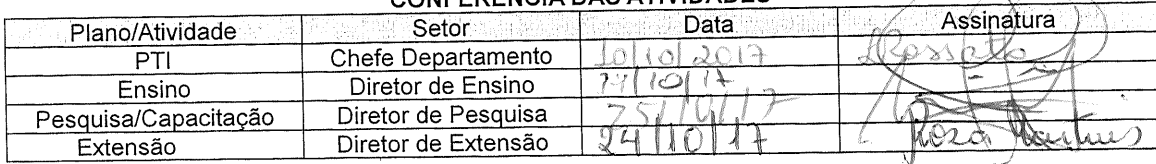 CONFERÊNCIA DAS ATIVIDADES
Plano/Atividade Setor Data Assinatura
PTI Chefe Departamento 10/10/2017 Rosseto
Ensino Diretor de Ensino /10/17
Pesquisa/Capacitação Diretor de Pesquisa
Extensão Diretor de Extensão 24/10/17 Martins